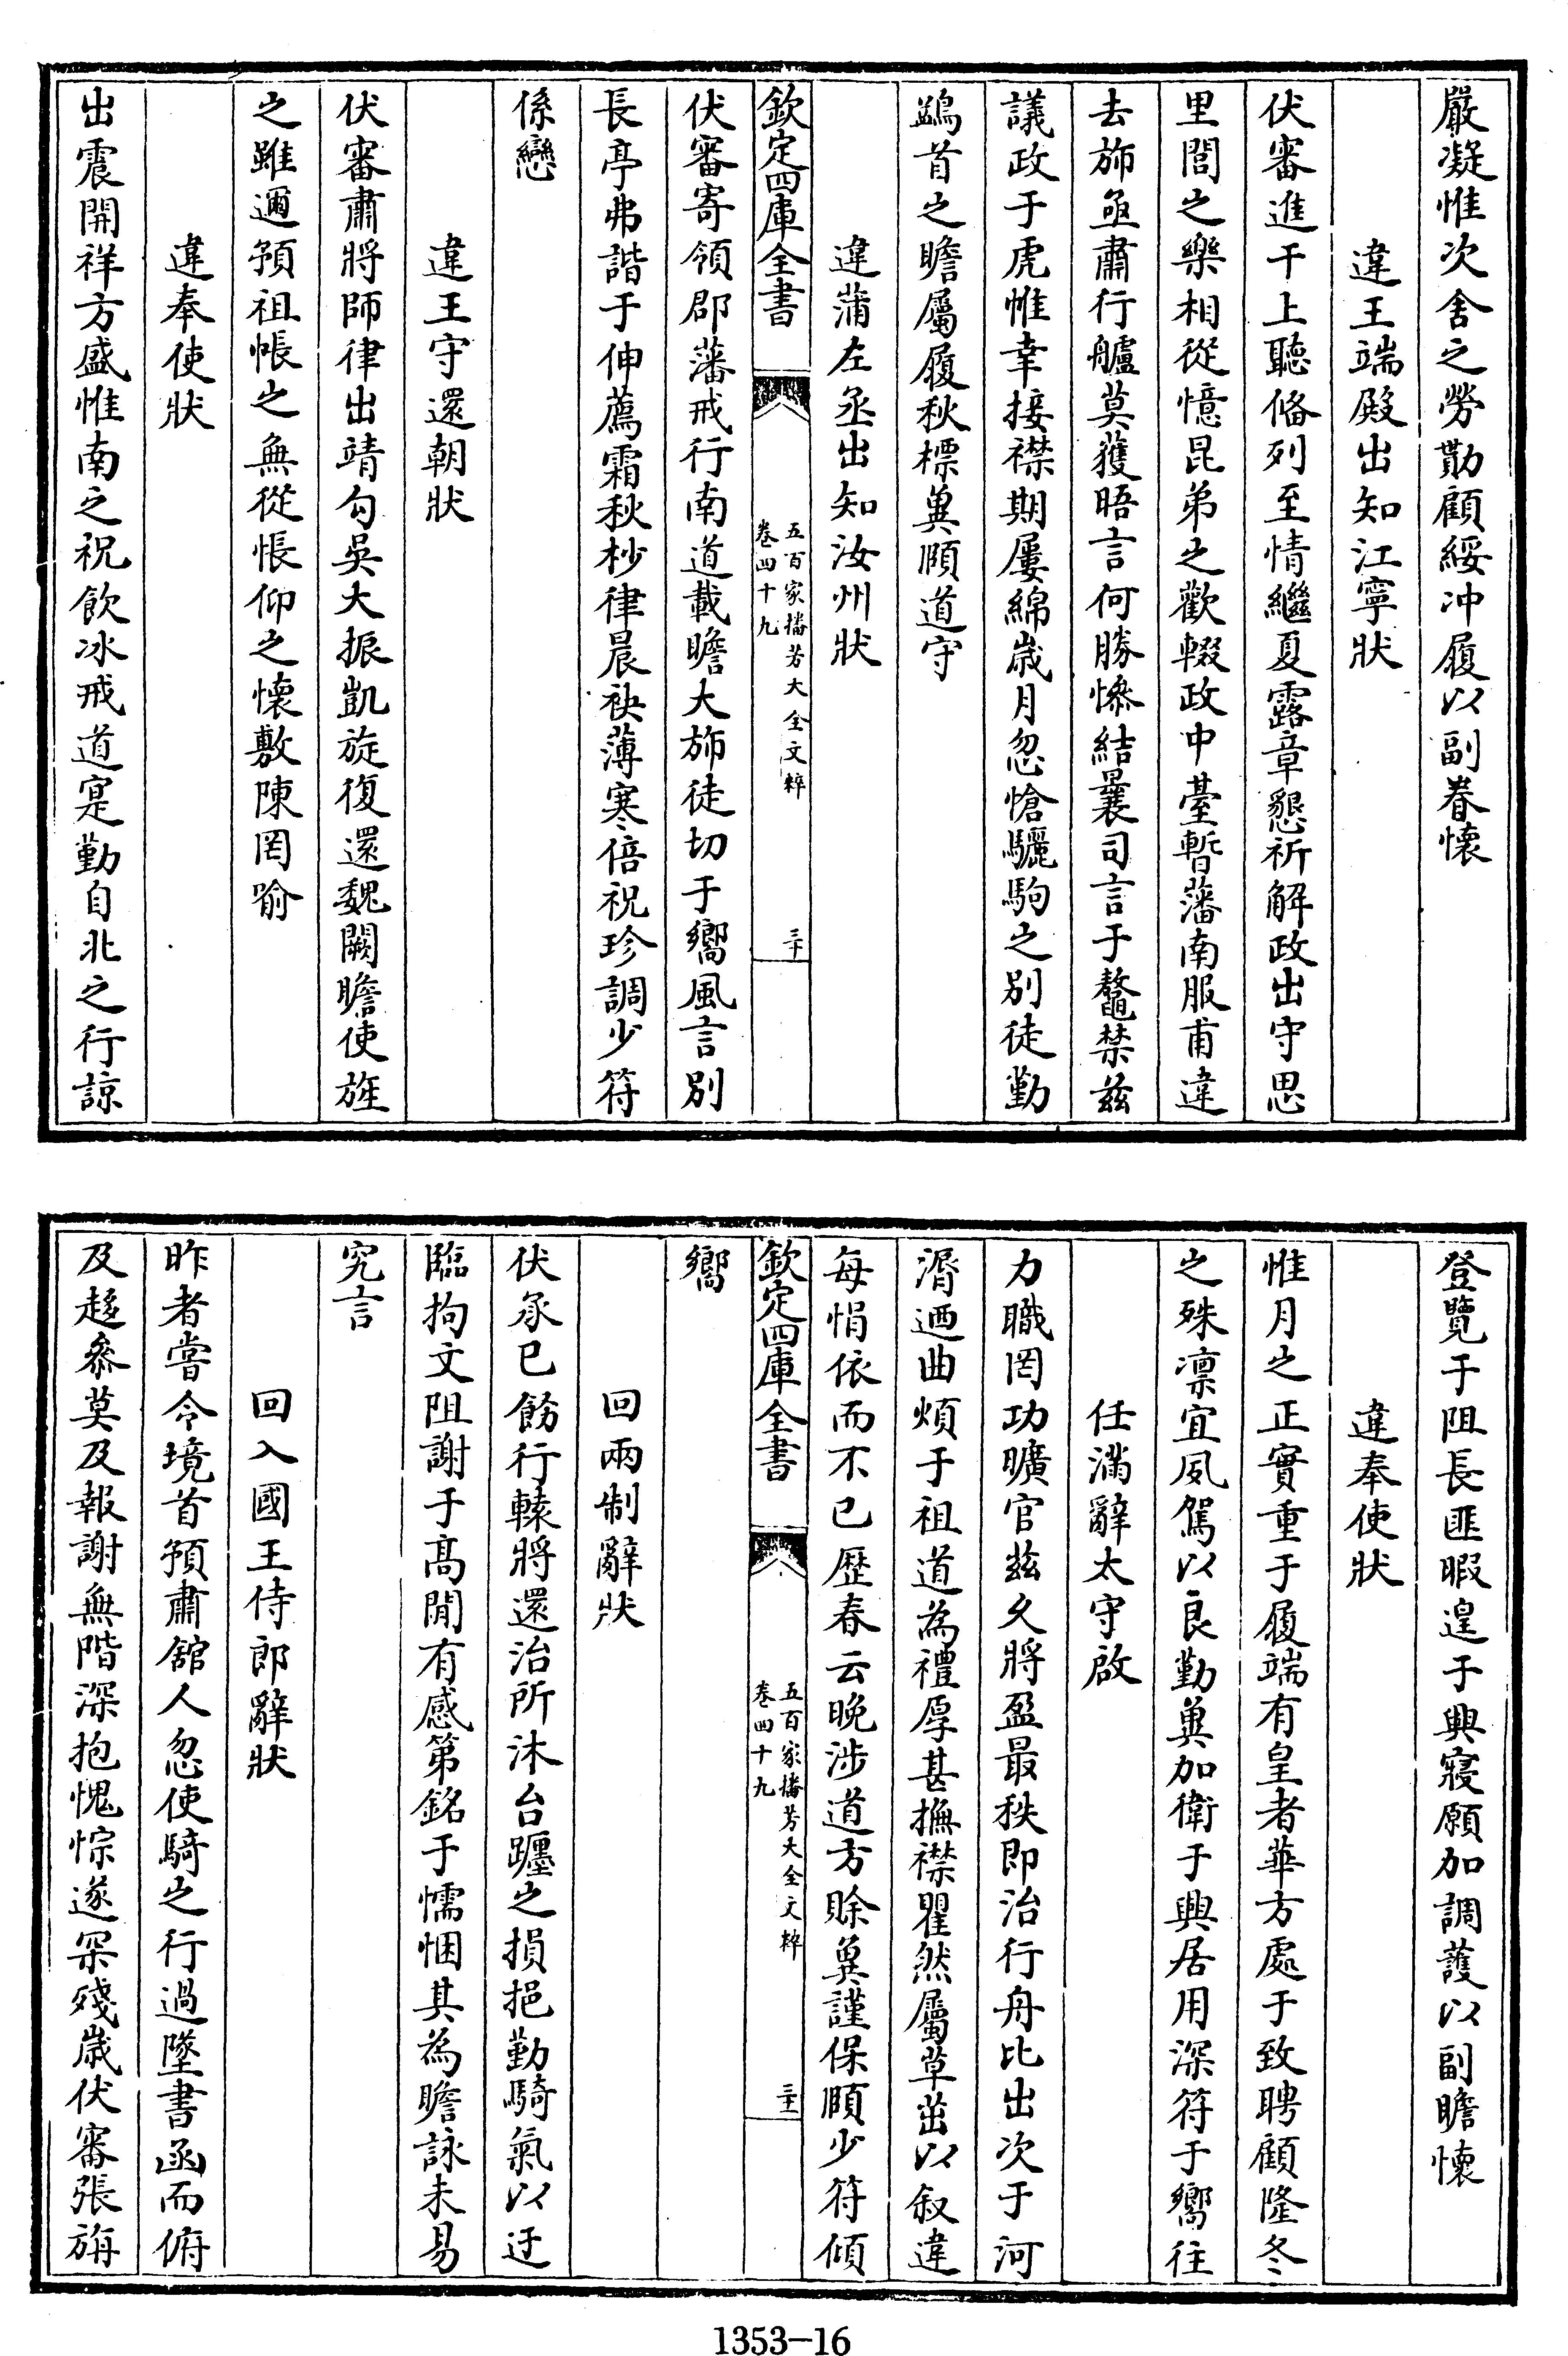 嚴凝惟次舍之勞勩顧綏冲履以副眷懷
違王端殿出知江寧狀
伏審進干上聽俻列至情繼夏露章懇祈解政出守思
里閭之樂相從憶昆弟之歡輟政中臺暫藩南服甫違
去斾亟肅行艫莫獲晤言何勝慘結曩司言于鼇禁兹
議政于虎惟幸接襟期屢綿歲月忽愴驪駒之别徒勤
鷁首之瞻屬履秋標兾順道守
違蒲左丞出知汝州狀
欽定四庫全書
五百家播芳大全文粹
卷四十九
三十
伏審寄領郡藩戒行南道載瞻大斾徒切于嚮風言别
長亭弗諧于伸薦霜秋杪律晨袂薄寒倍祝珍調少符
係戀
違王守還朝狀
伏審肅將師律出靖勾吳大振凱旋復還魏闕瞻使旌
之雖邇預祖帳之無從悵仰之懷敷陳罔喻
違奉使狀
出震開祥方盛惟南之祝飲冰戒道寔勤自北之行諒
登覽于阻長匪暇遑于興寢願加調䕶以副瞻懷
違奉使狀
惟月之正實重于履端有皇者華方處于致聘顧隆冬
之殊凛宜夙駕以良勤兾加衛于興居用深符于嚮往
任滿辭太守啟
力職罔功曠官兹久將盈最秩即治行舟比出次于河
漘迺曲煩于祖道為禮厚甚撫襟瞿然屬草茁以叙違
每悁依而不已歷春云晚涉道方賒兾謹保順少符傾
欽定四庫全書
五百家播芳大全文粹
卷四十九
三十一
嚮
回兩制辭狀
伏承已飭行轅將還治所沐台躔之損挹勤騎氣以迂
臨拘文阻謝于髙閒有感第銘于懦悃其為瞻詠未易
究言
回入國王侍郎辭狀
昨者嘗令境首預肅舘人忽使騎之行過墜書函而俯
及趍叅莫及報謝無階深抱愧悰遂罙殘歲伏審張旃
1353-16